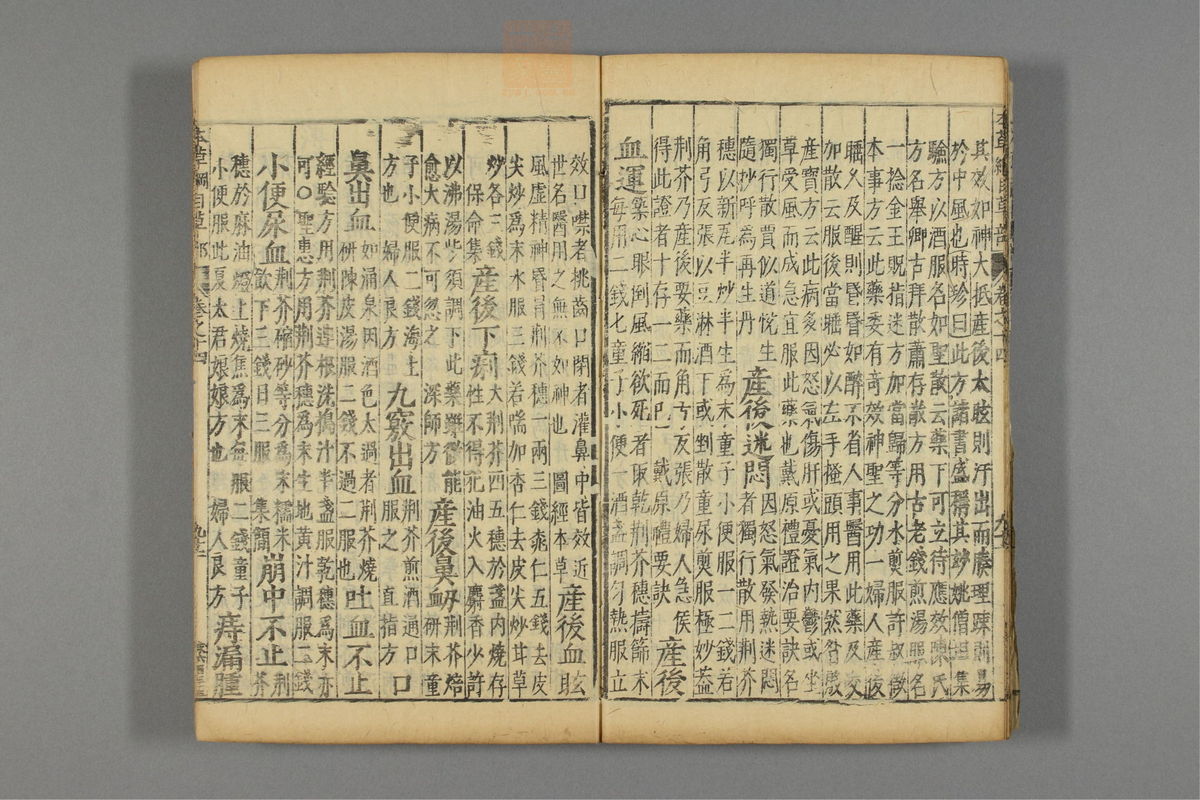 其效如神大抵產後太眩則汗出而腠理疎則易
於中風也時珍曰此方諸書盛稱其妙姚僧坦集
驗方以酒服名如聖散云藥下可立待應效陳氏
方名舉卿古拜散蕭存敬方用古老錢煎湯服名
一捻金王貺指迷方加當歸等分水煎服許叔微
本事方云此藥委有奇效神聖之功一婦人產後
睡久及醒則昏昏如醉不省人事醫用此藥及交
加散云服後當睡必以左手搔頭用之果然昝殷
產寶方云此病多因怒氣傷肝或憂氣內鬱或坐
草受風而成急宜服此藥也戴原禮證治要訣名
獨行散賈似道悅生隨抄呼為再生丹
產後迷悶
因怒氣發熱迷悶者獨行散用荆芥
穗以新瓦半炒半生為末童子小便服一二錢若
角弓反張以豆淋酒下或剉散童尿煎服極妙蓋
荆芥乃產後要藥而角弓反張乃婦人急侯
得此證者十存一二而已
戴原禮要訣
產後
血運
築心眼倒風縮欲死者取乾荆芥穗擣篩末
每用二錢七童子小便一酒盞調勻熱服立
效口噤者挑齒口閉者灌鼻中皆效近
世名醫用之無不如神也
圖經本草
產後血眩
風虛精神昏冒荆芥穗一兩三錢桃仁五錢去皮
尖炒為末水服三錢若喘加杏仁去皮尖炒甘草
炒各三錢
保命集
產後下痢
大荆芥四五穗於盞內燒存
性不得犯油火入麝香少許
以沸湯些須調下此藥雖微能
愈大病不可忽之
深師方
產後鼻衂
荆芥焙
研末童
子小便服二錢海上
方也
婦人良方
九竅出血
荆芥煎酒通口
服之
直指方
口
鼻出血
如涌泉因酒色太過者荆芥燒
研陳皮湯服二錢不過二服也
吐血不止
經驗方用荆芥連根洗搗汁半盞服乾穗為末亦
可○聖惠方用荆芥穗為末生地黃汁調服二錢
小便尿血
荆芥縮砂等分為末糯米
飲下三錢日三服
集簡
崩中不止
荆
芥
穗於麻油燈上燒焦為末每服二錢童子
小便服此夏太君娘娘方也
婦人良方
痔漏腫